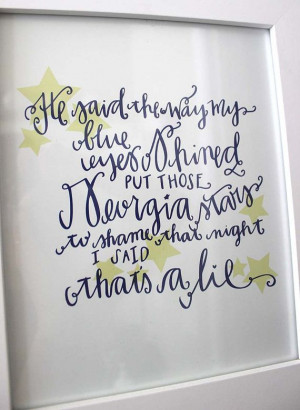 He said the way my
blue
eyes Shined
PUT THOSE
Georgia stars
to shame that night
I SAID
that's a lie